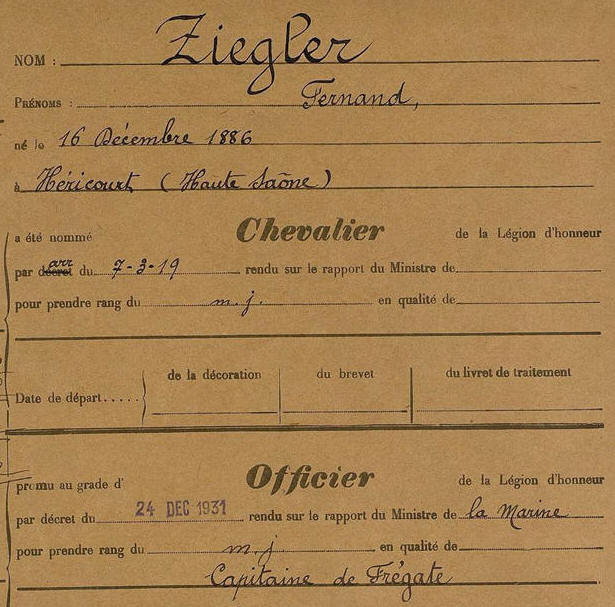 NOM : Ziegler
PRÉNOMS : Fernand,
né le 16 Décembre 1886
à Héricourt (Haute Saône)
a été nommé Chevalier de la Légion d'honneur
arr
par décret du 7-3-19 rendu sur le rapport du Ministre de
pour prendre rang du m.j. en qualité de
de la décoration du brevet du livret de traitement
Date de départ.....
promu au grade d' Officier de la Légion d'honneur
par décret du 24 DEC 1931 rendu sur le rapport du Ministre de la Marine
pour prendre rang du m.j. en qualité de
Capitaine de Frégate